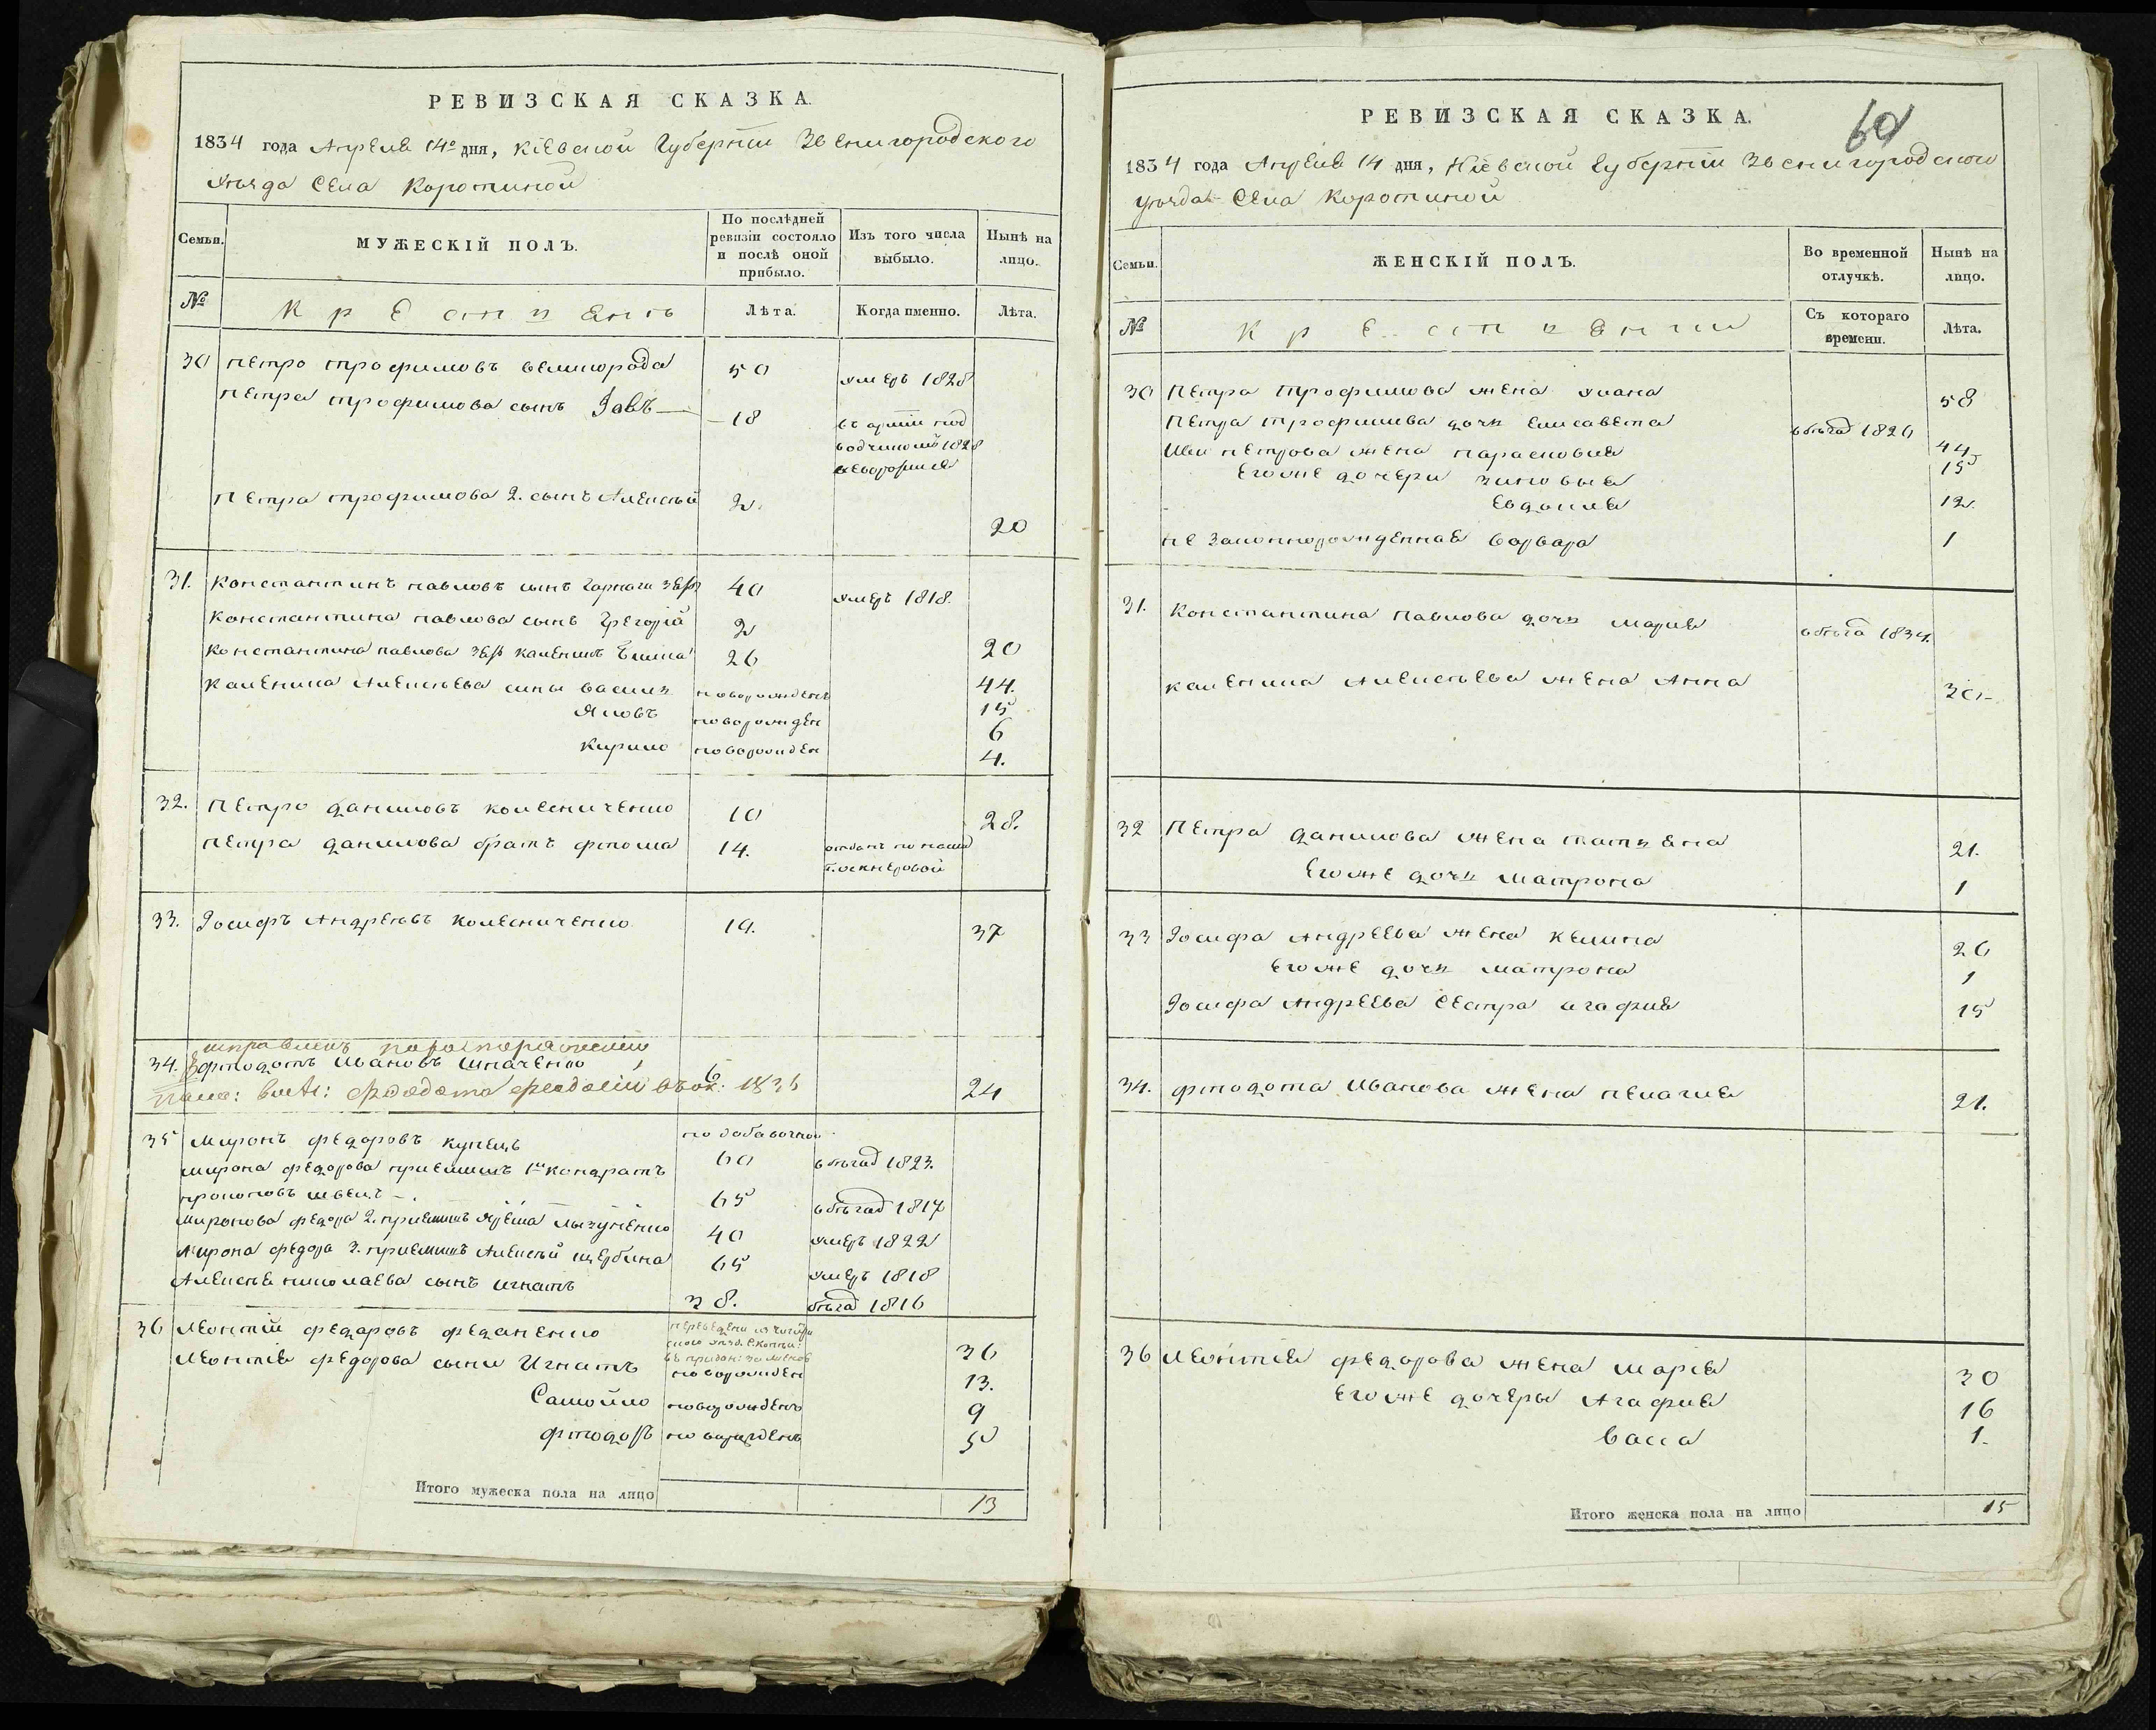 РЕВИЗСКАЯ СКАЗКА.
1834 года Апреля 14º дня, Кіевской Губерніи Звенигородского
уѣзда Села Коротиной
Семьи.
МУЖЕСКІЙ ПОЛЪ.
По послѣдней ревизіи состояло и послѣ оной прибыло.
Изъ того числа выбыло.
Нынѣ на лицо.
№
Крестьянъ
Лѣта.
Когда именно.
Лѣта.
30 Петро Трофимовъ 50 умеръ 1828
Петра Трофимова сынъ 18
Петра Трофимова 2. сынъ Алексѣй 2. 20
31. Константинъ Павловъ сынъ 40 умеръ 1818.
Константина Павлова сынъ Григорій 2 20
Константина Павлова зять 26 44.
Каленика Алексѣева сины Василь новорожденъ 15
Яковъ новорожден 6
Кирило новорожден 4.
32. Петро Даниловъ Колесниченко 10 28.
Петра Данилова братъ Фтома 14.
33. Іосифъ Андреевъ Колесниченко 19. 37
34. Фтодотъ Ивановъ Шпаченко 6 24
35 Миронъ Федоровъ Купецъ по добавочной 60 в бѣгах 1823.
Мирона Федорова приемишъ 1й Кондратъ
65 в бѣгах 1817
Миронова Федора 2. приемишъ Ярема 40 умеръ 1822
Мирона Федора 3. приемишъ Алексѣй Щербина 65 умеръ 1818
Алексѣя Николаева сынъ Игнатъ 38. бѣгах 1816
36 Леонтій Федаровъ Феданенко 36
Леонтія Федорова сыни Игнатъ новорожден 13.
Самойло новорожденъ 9
Фтодосъ новорожденъ 5
Итого мужеска пола на лицо 13
РЕВИЗСКАЯ СКАЗКА.
60
1834 года Апреля 14 дня, Кіевской Губерніи Звенигородской
уѣзда Села Коротиной
Семьи.
ЖЕНСКІЙ ПОЛЪ.
Во временной отлучкѣ.
Нынѣ на лицо.
№
Крестьянки
Съ котораго времени.
Лѣта.
30 Петра Трофимова жена Улана 58
Петра Трофимова дочь Елисавета в бѣгах 1826
Петрова жена Парасковия 44
Его же дочери Зиновыя 15
Евдокия 12.
Не законнорожденная Варвара 1
31. Константина Павлова дочь Мария в бѣга 1834.
Каленика Алексѣева жена Анна 30
32 Петра Данилова жена Татьяна 21.
Его же дочь Матрона 1
33 Іосифа Андреева жена Келина 26
Его же дочь Матрона 1
Іосифа Андреева сестра Агафия 15
34. Фтодота Иванова жена Пелагия 21.
36 Леонтія Федорова жена Марія 30
Его же дочеры Агафия 16
Васса 1.
Итого женска пола на лицо 15